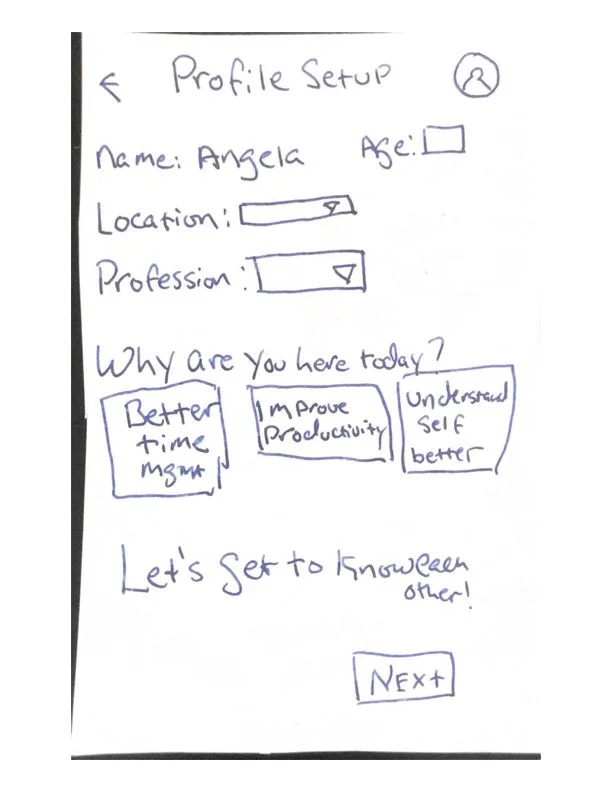 Profile Setup
Name: Angela Age:
Location:
Profession:
Why are you here today?
Better
time
mgmt
Improve
Productivity
Understand
Self
better
Let's get to know each
other!
NEXT